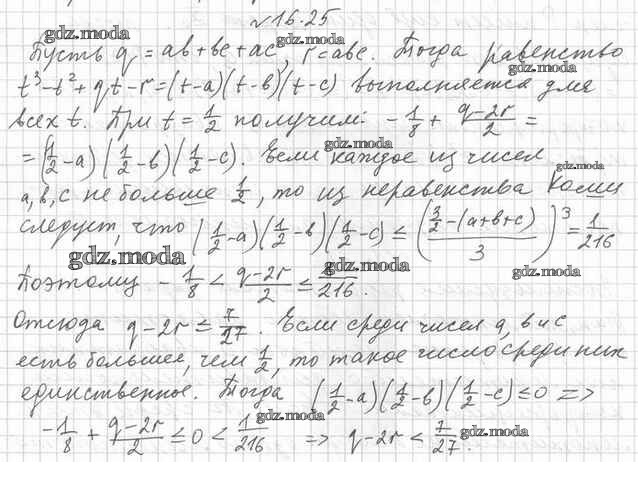 №16.25
Пусть q = ab+bc+ac, r=abc. Тогда равенство
t³-t²+qt-r=(t-a)(t-b)(t-c) выполняется для
всех t. При t = 1/2 получим: -1/8 + (q-2r)/2 =
= (1/2-a)(1/2-b)(1/2-c). Если каждое из чисел
a, b, c не больше 1/2, то из неравенства Коши
следует, что (1/2-a)(1/2-b)(1/2-c) ≤ ((3/2-(a+b+c))/3)³ = 1/216
Поэтому -1/8 < (q-2r)/2 ≤ /216.
Отсюда q-2r ≤ 7/27. Если среди чисел a, b и c
есть большее, чем 1/2, то такое число среди них
единственное. Тогда (1/2-a)(1/2-b)(1/2-c) ≤ 0 =>
-1/8 + (q-2r)/2 ≤ 0 < 1/216 => q-2r < 7/27.
gdz.moda
gdz.moda
gdz.moda
gdz.moda
gdz.moda
gdz.moda
gdz.moda
gdz.moda
gdz.moda
gdz.moda